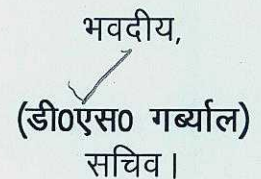 भवदीय,
(डी0एस0 गर्ब्याल)
सचिव।